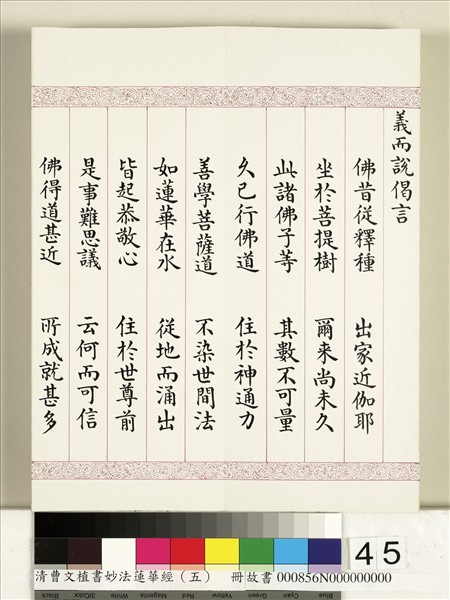 義而說偈言
佛昔從釋種 出家近伽耶
坐於菩提樹 爾来尚未久
此諸佛子等 其數不可量
久已行佛道 住於神通力
善學菩薩道 不染世間法
如蓮華在水 從地而涌出
皆起恭敬心 住於世尊前
是事難思議 云何而可信
佛得道甚近 所成就甚多
45
清曹文植書妙法蓮華經（五） 冊故書 000856N000000000
Blue Cyan Green Yellow Red Magenta White 3/Color Black